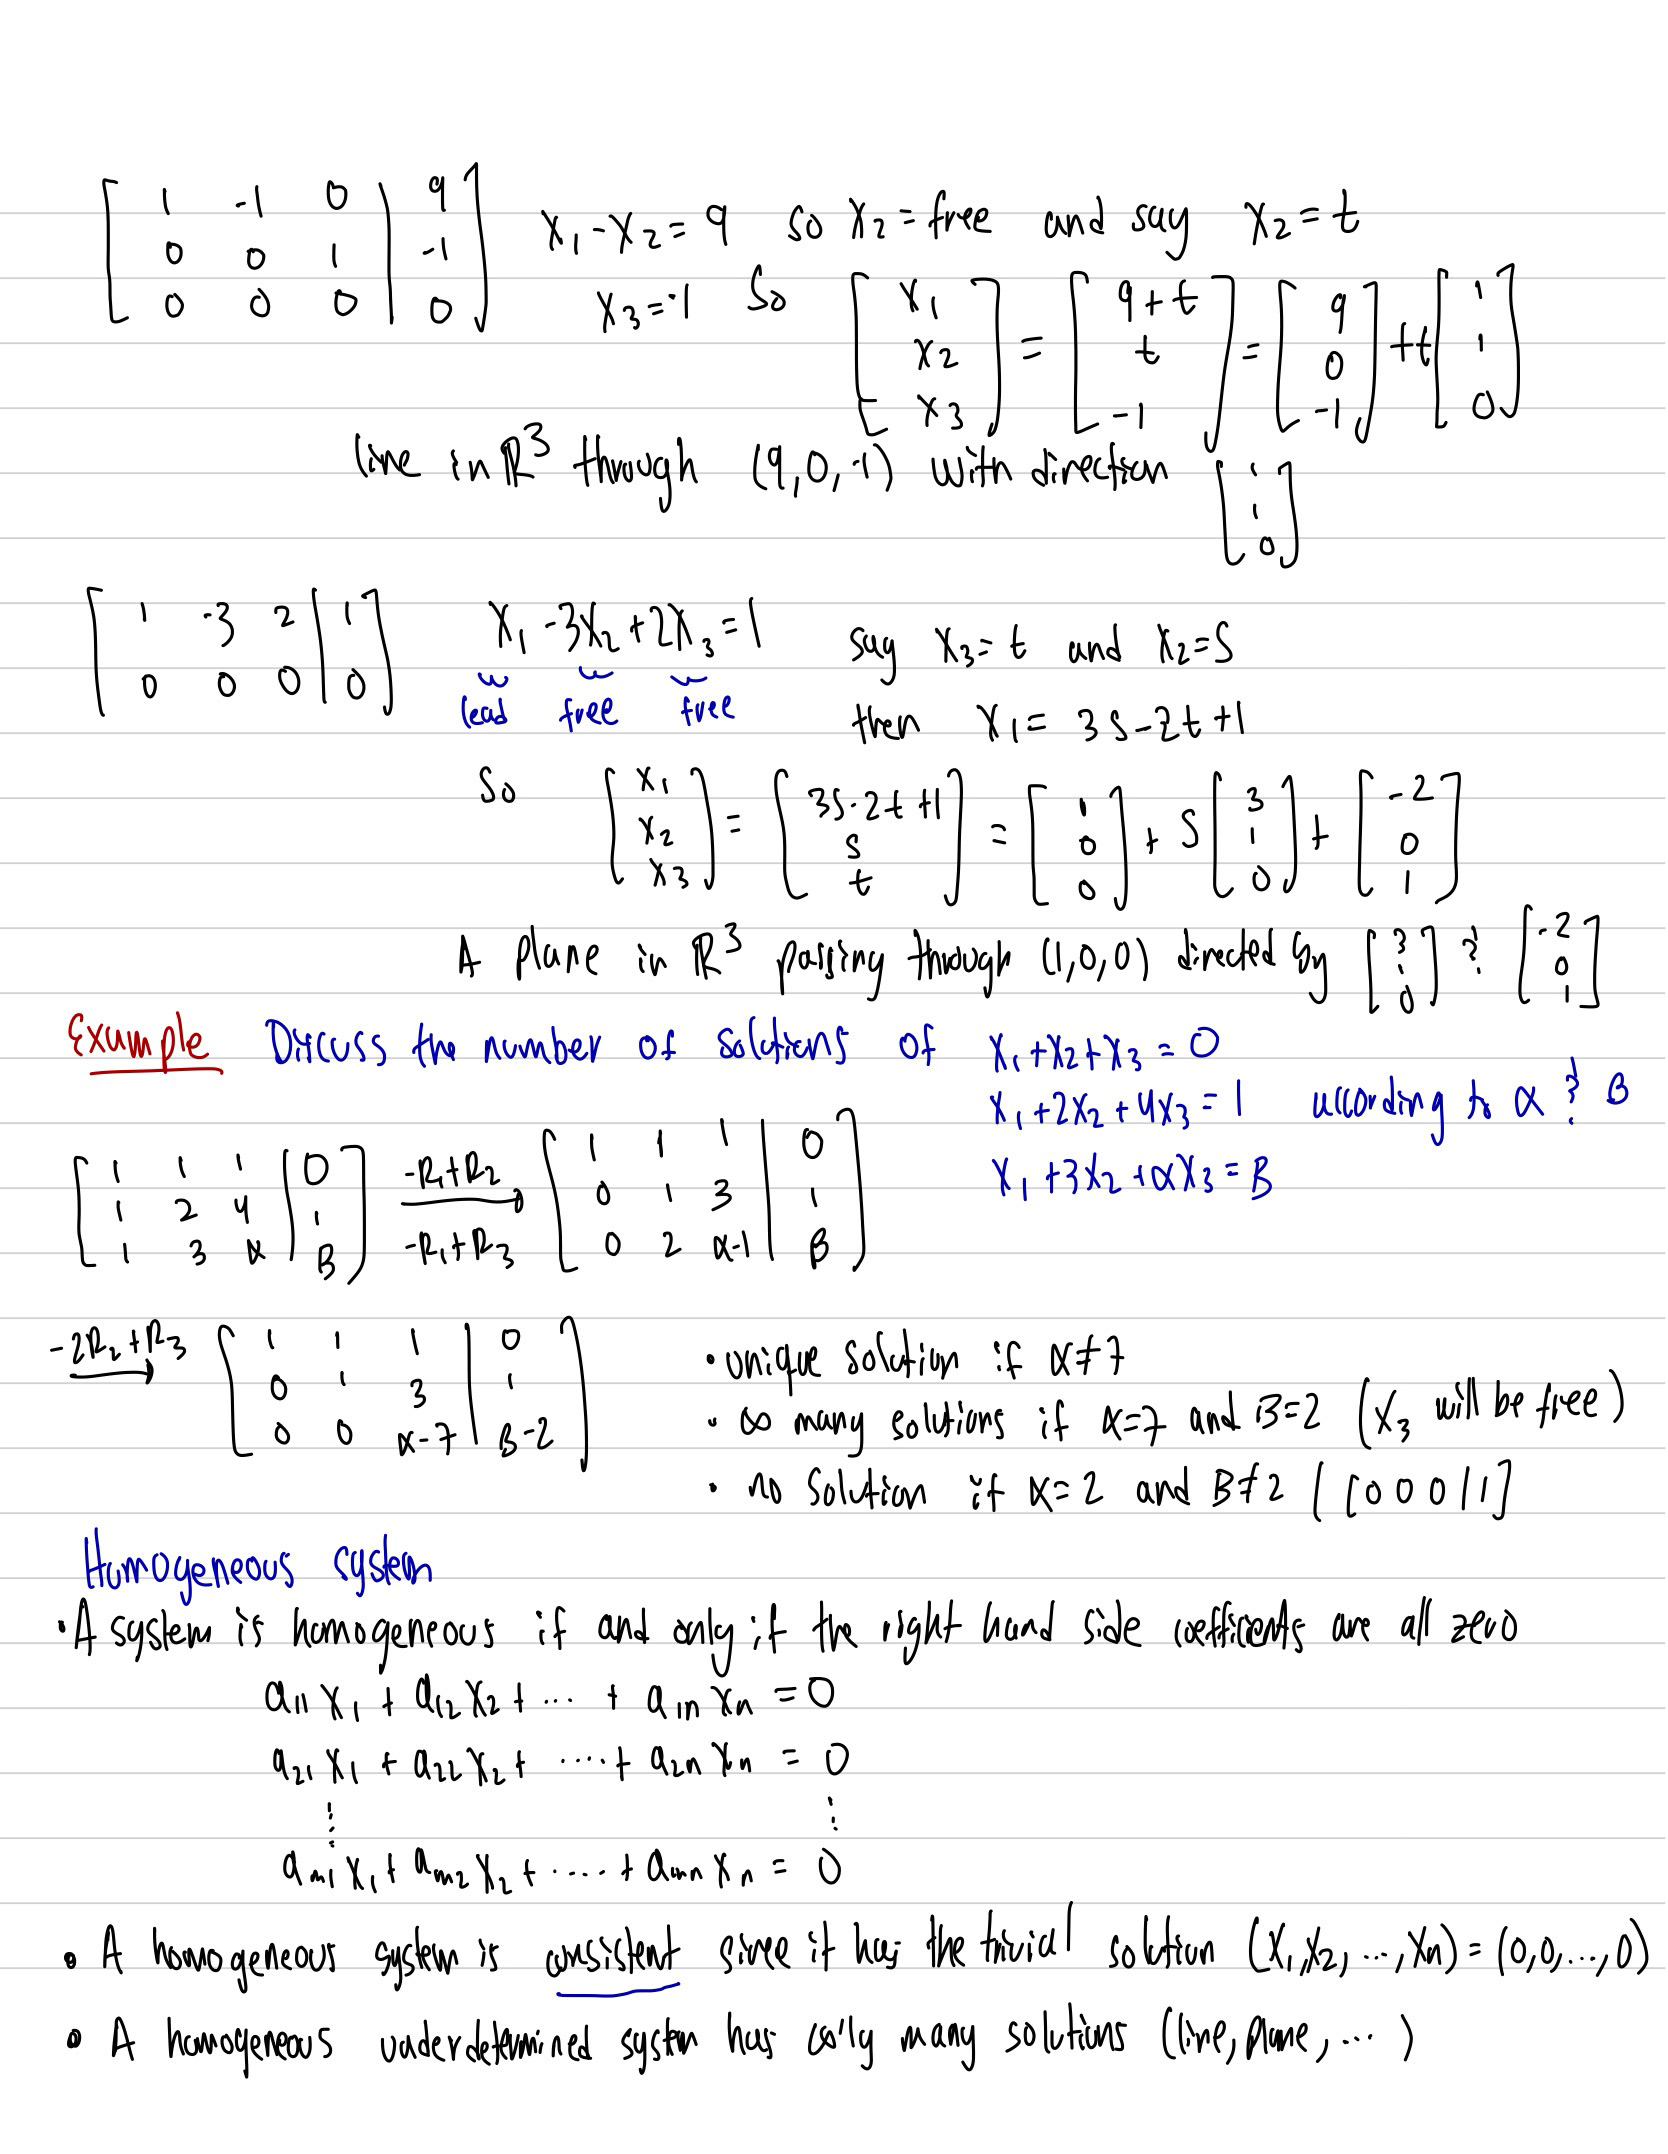 [ 1 -1 0 | 9 ]
[ 0 0 1 | -1 ]
[ 0 0 0 | 0 ]
x₁ - x₂ = 9 so x₂ = free and say x₂ = t
x₃ = -1 So [ x₁ x₂ x₃ ] = [ 9 + t t -1 ] = [ 9 0 -1 ] + t [ 1 1 0 ]
line in ℝ³ through (9, 0, -1) with direction [ 1 1 0 ]
[ 1 -3 2 | 1 ]
[ 0 0 0 | 0 ]
x₁ - 3x₂ + 2x₃ = 1 say x₃ = t and x₂ = s
lead free free
then x₁ = 3s - 2t + 1
So [ x₁ x₂ x₃ ] = [ 3s - 2t + 1 s t ] = [ 1 0 0 ] + s [ 3 1 0 ] + [ -2 0 1 ]
A plane in ℝ³ passing through (1,0,0) directed by [ 3 1 0 ] & [ -2 0 1 ]
Example Discuss the number of solutions of x₁ + x₂ + x₃ = 0
x₁ + 2x₂ + 4x₃ = 1 according to α & B
x₁ + 3x₂ + αx₃ = B
[ 1 1 1 | 0 ]
[ 1 2 4 | 1 ]
[ 1 3 α | B ]
-R₁+R₂
-R₁+R₃
[ 1 1 1 | 0 ]
[ 0 1 3 | 1 ]
[ 0 2 α-1 | B ]
-2R₂+R₃
[ 1 1 1 | 0 ]
[ 0 1 3 | 1 ]
[ 0 0 α-7 | B-2 ]
• unique solution if α ≠ 7
• ∞ many solutions if α=7 and B=2 (x₃ will be free)
• no solution if α = 2 and B ≠ 2 ( [0 0 0 | 1]
Homogeneous system
• A system is homogeneous if and only if the right hand side coefficients are all zero
a₁₁x₁ + a₁₂x₂ + ... + a₁ₙxₙ = 0
a₂₁x₁ + a₂₂x₂ + .... + a₂ₙxₙ = 0
⋮ ⋮
aₘ₁x₁ + aₘ₂x₂ + ..... + aₘₙxₙ = 0
• A homogeneous system is consistent since it has the trivial solution (x₁,x₂, ..., xₙ) = (0,0,...,0)
• A homogeneous underdetermined system has ∞'ly many solutions (line, plane, ... )